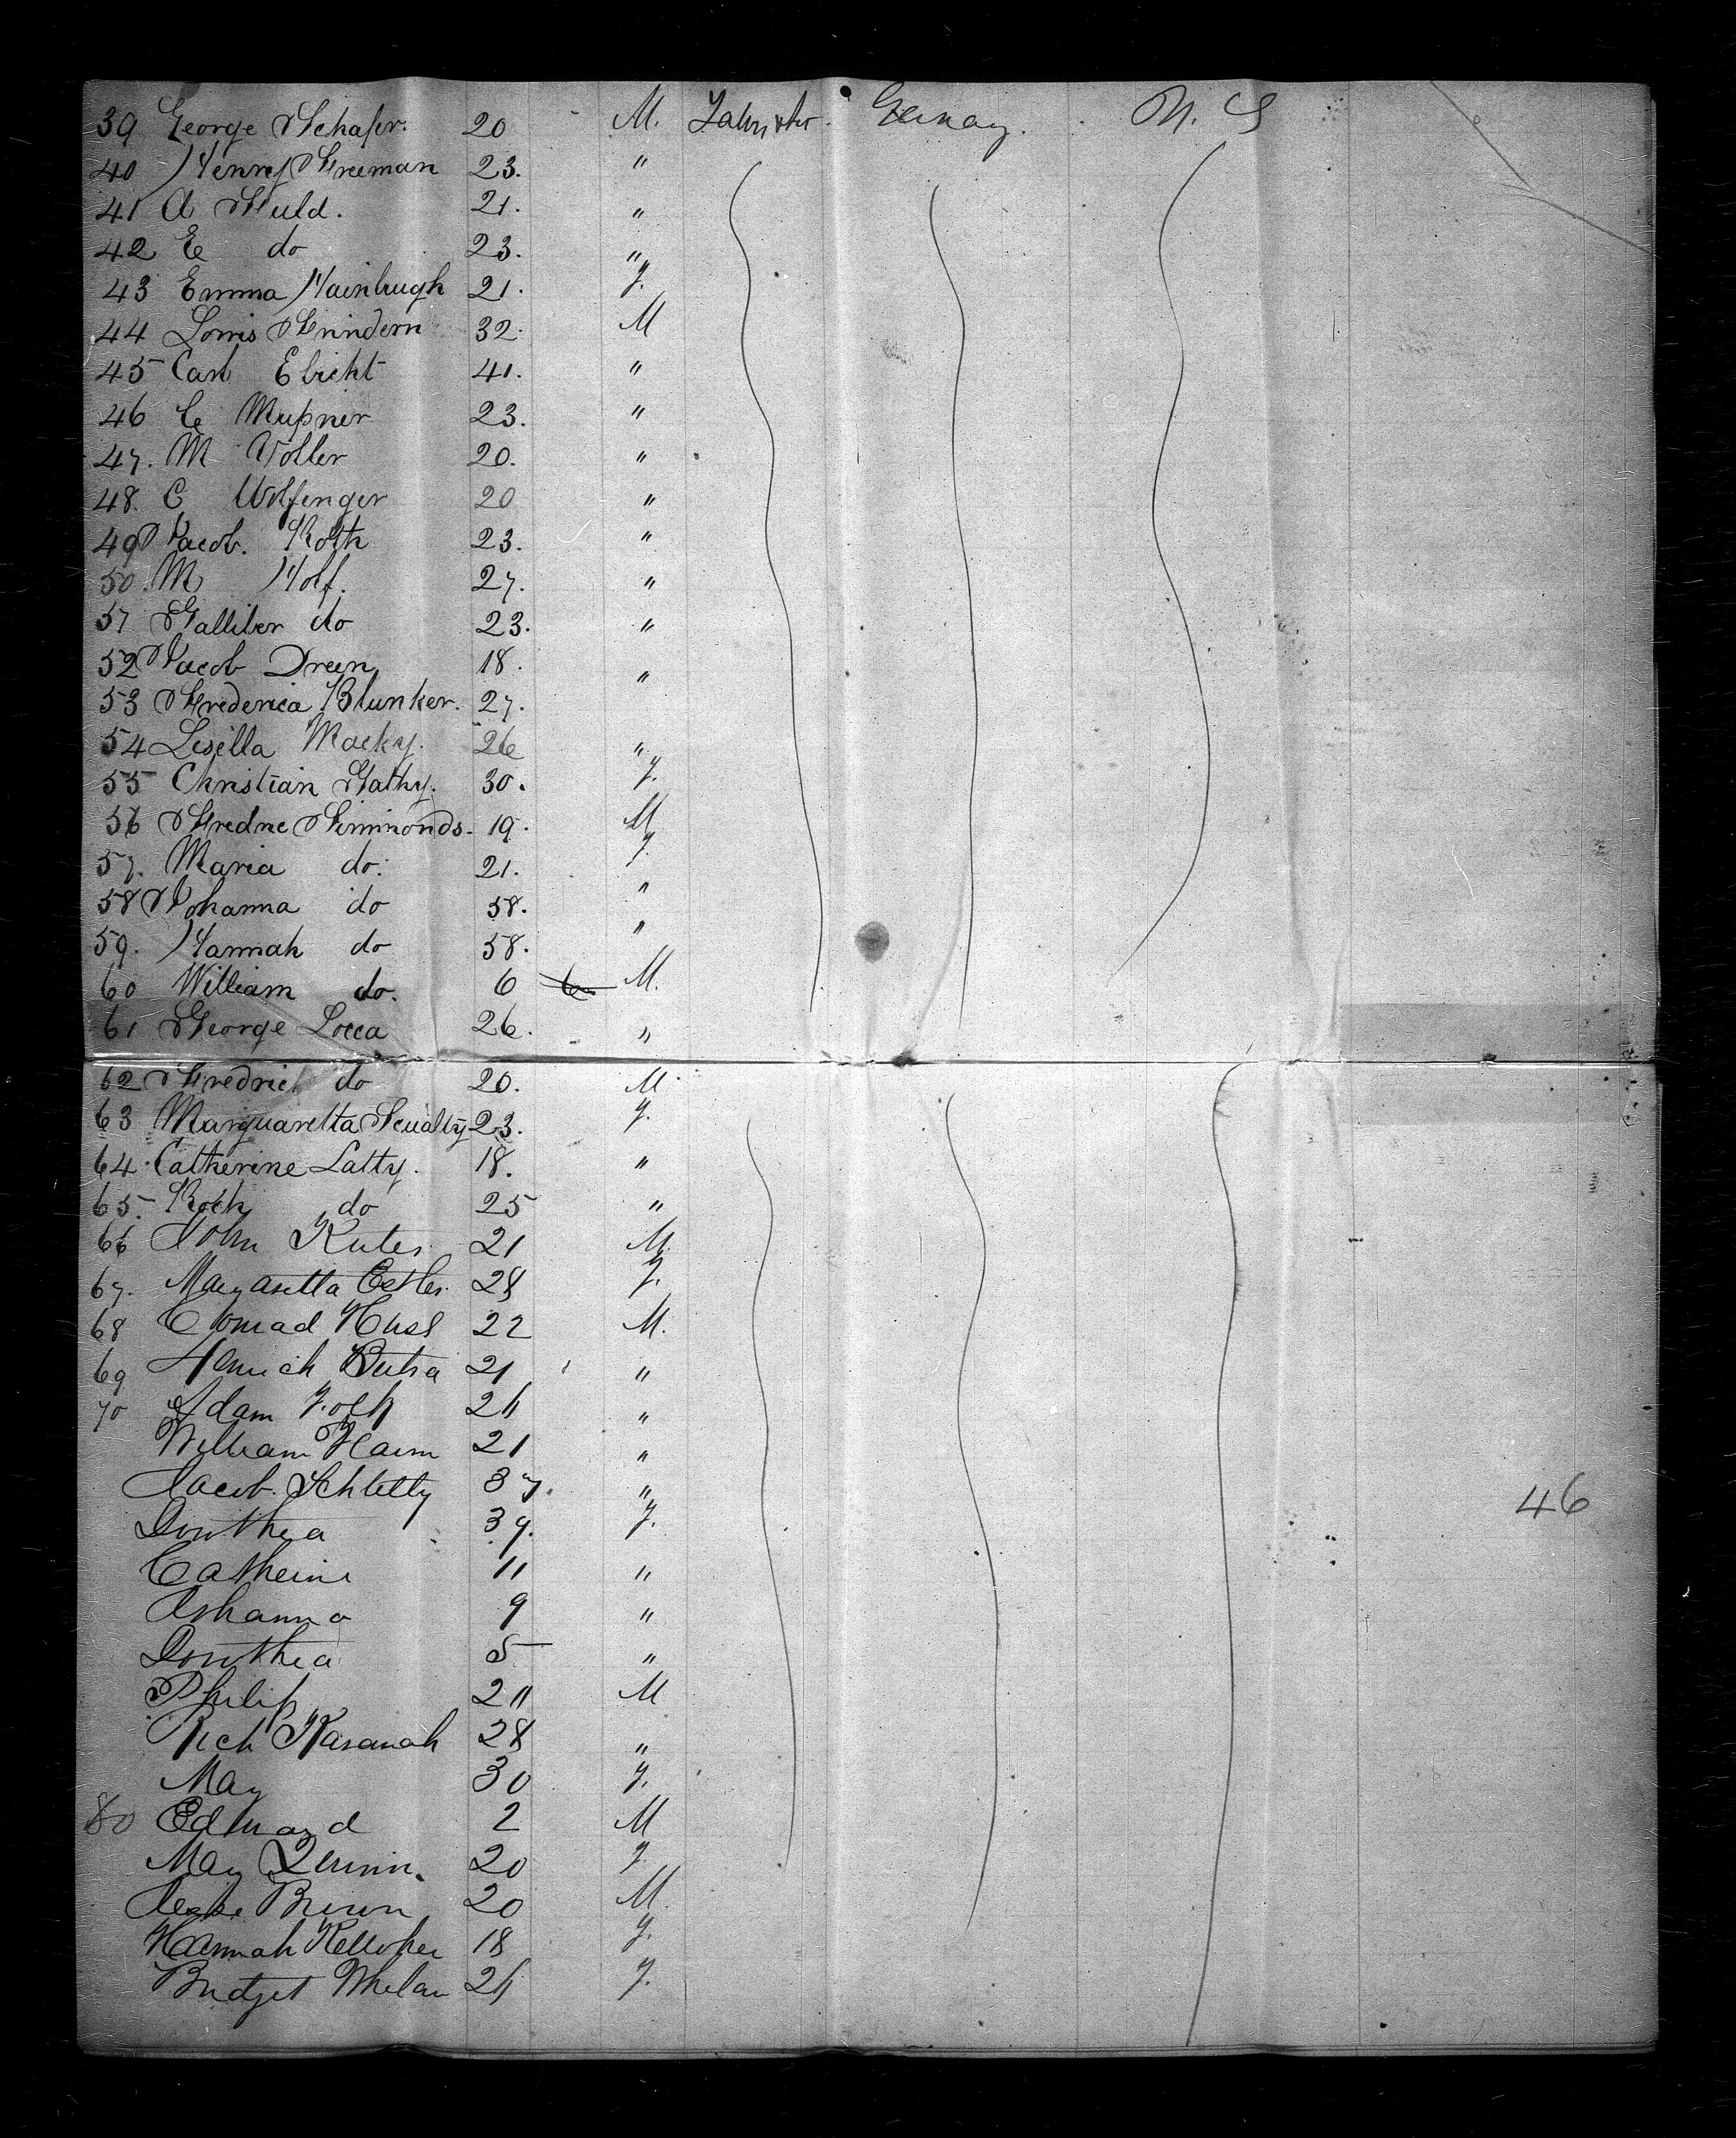 39 George Schafer. 20 M. Germany. U. S
40 Henry Freeman 23. "
41 A Fuld. 21. "
42 E do 23. "
43 Emma Hainbugh 21. F.
44 Louis 32. M
45 Carl Ebicht 41. "
46 C Mußner 23. "
47. M Voller 20. "
48. C Wolfenger 20 "
49 Jacob. Roth 23. "
50. M Hoff. 27. "
51 Galliber do 23. "
52 Jacob Dreen 18. "
53 Frederica Blunker. 27.
54 Lisella Macky. 26 "
55 Christian Gathy. 30. F.
56 Simmonds. 19. M
57. Maria do. 21. F.
58 Johanna do 58. "
59. Hannah do 58. "
60 William do. 6 M.
61 George Locca 26. "
62 Fredrick do 20. M
63 Marguaretta 23. F.
64. Catherine Latty. 18. "
65. Roth do 25 "
66 John 21 M.
67. Margaretta 28 F.
68 Conrad 22 M.
69 21 "
70 Adam 24 "
William 21 "
Jacob. Schletty 37. "
Dorothea 39. F.
Catherine 11 "
Johanna 9 "
Dorothea 5 "
Philip 24 M
46
Rich Kavanah 28 "
May 30 F.
80 Edward 2 M
May Quinn. 20 F.
Brown 20 M
Hannah Kelloher 18 F.
Bridget Whelan 24 F.